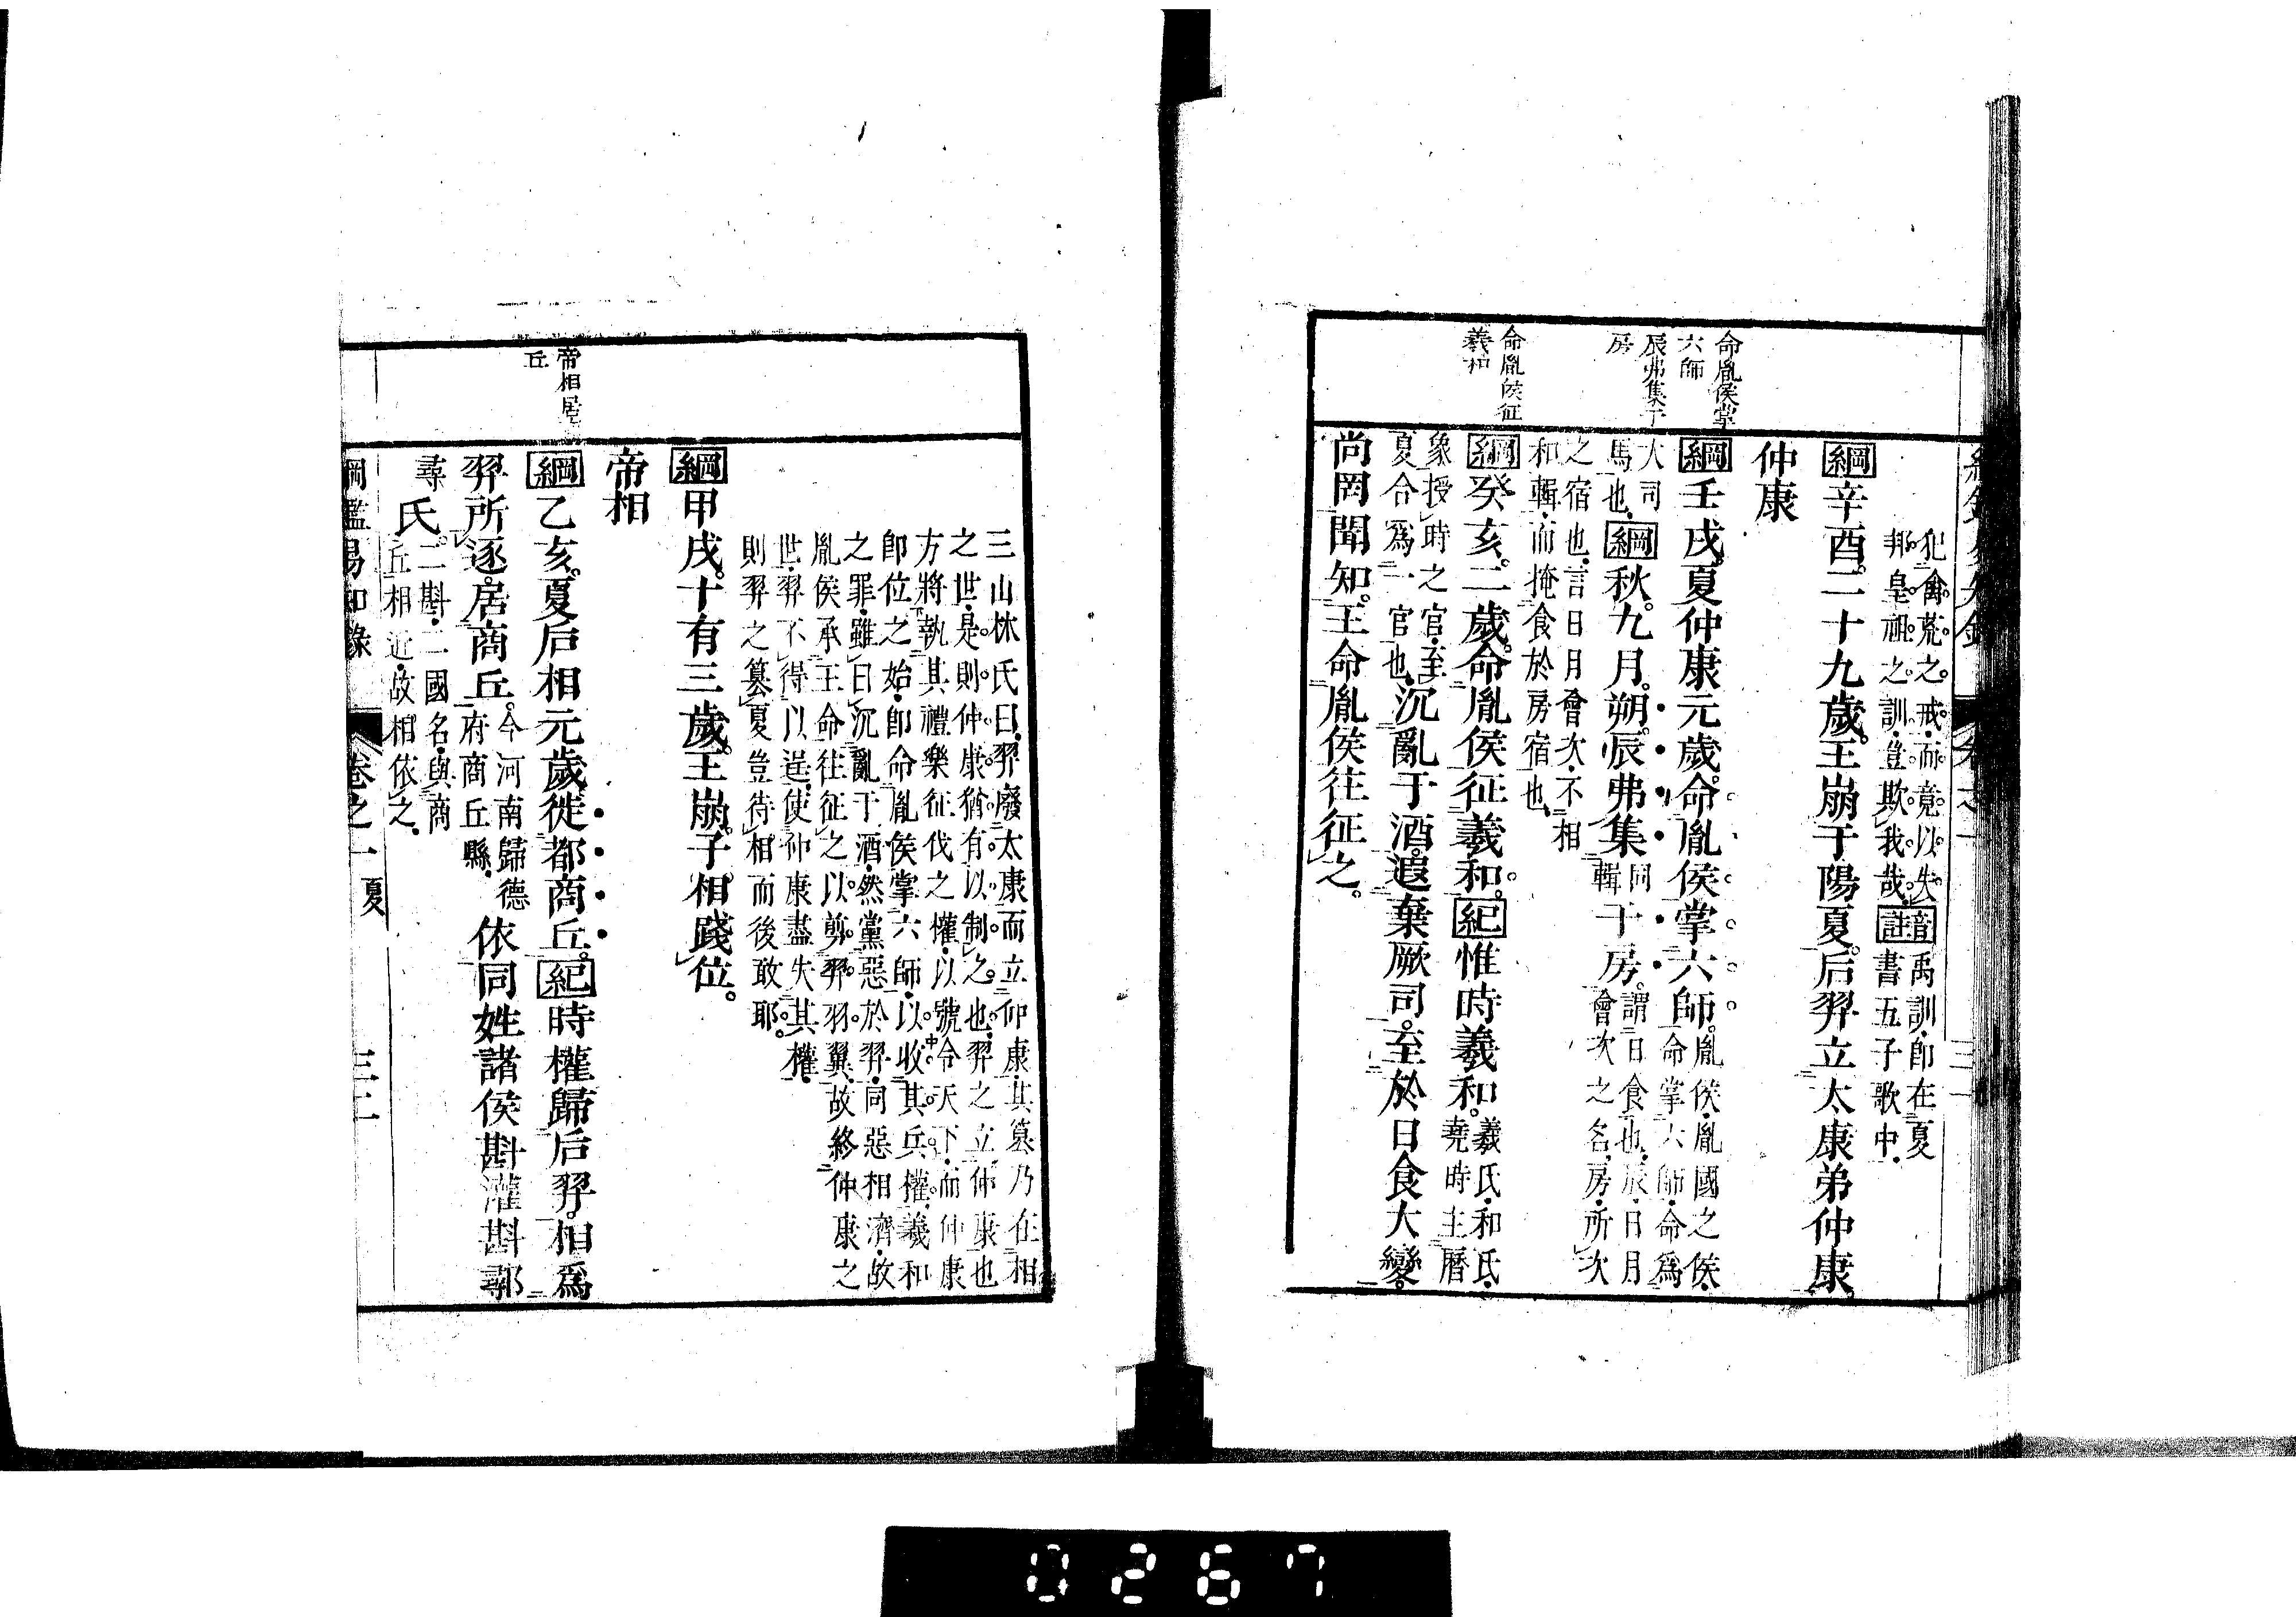 命胤侯掌
六師
辰弗集于
房
命胤侯征
羲和
犯禽荒之戒而竟以失
邦皇祖之訓豈欺我哉
音註
禹訓卽在夏
書五子歌中
綱辛酉二十九歲王崩于陽夏后羿立太康弟仲康
仲康
綱壬戌夏仲康元歲命胤侯掌六師
胤侯胤國之侯
命掌六師命爲
大司
馬也
綱秋九月朔辰弗集
同
輯
于房
謂日食也辰日月
會次之名房所次
之宿也言日月會次不相
和輯而掩食於房宿也
綱癸亥二歲命胤侯征羲和紀惟時羲和
羲氏和氏
堯時主曆
象授時之官至
夏合爲一官也
沉亂于酒遐棄厥司至於日食大變
尚罔聞知王命胤侯往征之
三山林氏曰羿廢太康而立仲康其篡乃在相
之世是則仲康猶有以制之也羿之立仲康也
方將執其禮樂征伐之權以號令天下而仲康
卽位之始卽命胤侯掌六師以收其兵權羲和
之罪雖曰沉亂于酒然黨惡於羿同惡相濟故
胤侯承王命往征之以剪羿羽翼故終仲康之
世羿不得以逞使仲康盡失其權
則羿之篡夏豈待相而後敢耶
綱甲戌十有三歲王崩子相踐位
帝相
帝相居
丘
綱乙亥夏后相元歲徙都商丘紀時權歸后羿相爲
羿所逐居商丘
今河南歸德
府商丘縣
依同姓諸侯斟灌斟鄩
尋
氏
二斟二國名與商
丘相近故相依之
綱鑑易知錄 卷之一 夏 三二